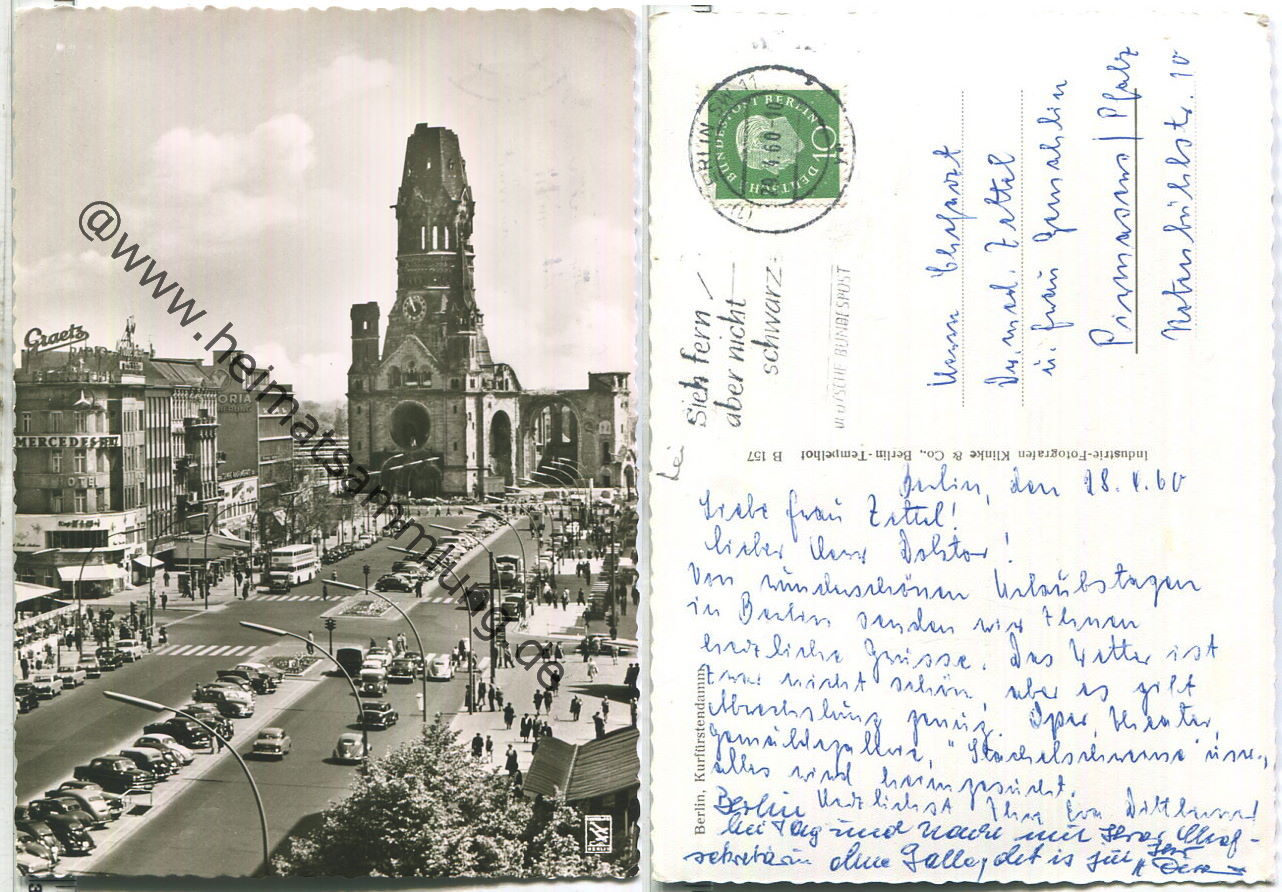 @www.heimatsammlung.de
Graetz
RADIO
MERCEDES
HOTEL
ORIA
BERLIN
BERLIN SW 11
60-10
DEUTSCHE BUNDESPOST BERLIN
10
Sieh fern
aber nicht
schwarz
DEUTSCHE BUNDESPOST
Herrn
Dr. med. Zettel
u. Frau Gemahlin
Pirmasens / Pfalz
10
Industrie-Fotografen Klinke & Co., Berlin-Tempelhof B 157
Berlin, Kurfürstendamm
Berlin, den 18.4.60
Liebe Frau Zettel!
Lieber Herr Doktor!
Von wunderschönen Urlaubstagen
in Berlin senden wir Ihnen
herzliche Grüsse. Das Wetter ist
zwar nicht schön, aber es gibt
Abwechslung genug. Oper, Theater,
Gemäldegallerie, "Stachelschweine" usw.,
alles wird heimgesucht.
Herzlichst Ihre Eva
Berlin
bei Tag und Nacht mit Ihrer Chef-
sekretärin ohne